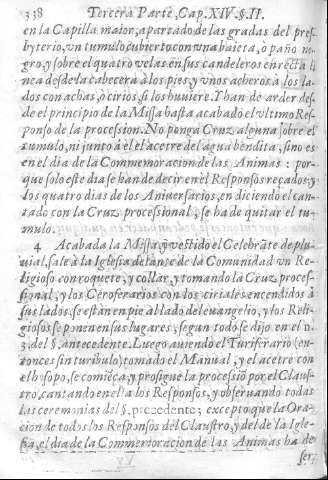 338 Tercera Parte, Cap. XIV. §. II.
en la Capilla maior, apartado de las gradas del pres-
byterio, vn tumulo cubierto con vna baieta, o paño ne-
gro, y sobre el quatro velas en sus candeleros en recta li
nea desde la cabecera à los pies, y vnos acheros à los la-
dos con achas, ò cirios, si los huuiere. Y han de arder des-
de el principio de la Missa hasta acabado el vltimo Res-
ponso de la procession. No ponga Cruz alguna sobre el
tumulo, ni junto à el el acetre del agua bendita, sino es
en el dia de la Commemoracion de las Animas: por-
que solo este dia se han de decir en el Responsos reçados, y
los quatro dias de los Aniuersarios, en diciendo el can-
tado con la Cruz processional, se ha de quitar el tu-
mulo.
4 Acabada la Missa, y vestido el Celebrãte de plu-
uial, sale à la Iglesia delante de la Comunidad vn Re-
ligioso con roquete, y collar, y tomando la Cruz proces-
sional, y los Ceroferarios con los ciriales encendidos à
sus lados, se están en pie al lado del euangelio, y los Reli-
giosos se ponen en sus lugares, segun todo se dijo en el n.
3. del §. antecedente. Luego auiendo el Turiferario (en-
tonces sin turibulo) tomado el Manual, y el acetre con
el hysopo, se comiẽça, y prosigue la processiõ por el Claus-
tro, cantando en el a los Responsos, y obseruando todas
las ceremonias del §. precedente; excepto que la Ora-
cion de todos los Responsos del Claustro, y del de la Igle-
sia, el dia de la Commemoracion de las Animas ha de
ser,